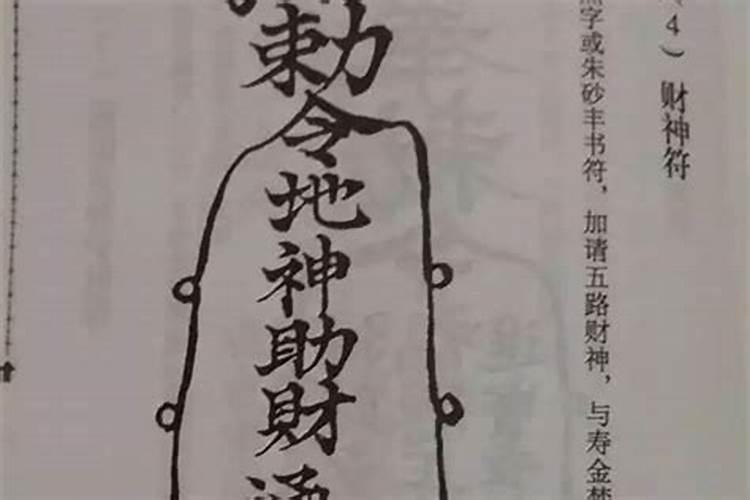 4）财神符
字或朱砂丰书符，加请五路财神，与寿金焚
勅令地神助財通